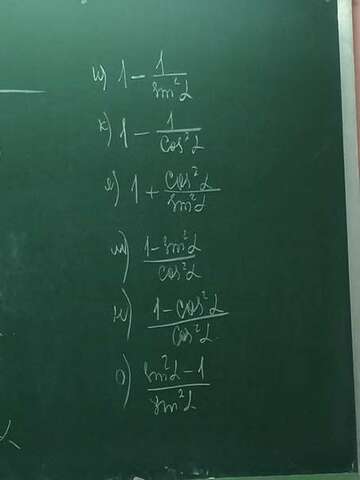 и) 1 - 1/sin²α
к) 1 - 1/cos²α
л) 1 + cos²α/sin²α
м) (1 - sin²α)/cos²α
н) (1 - cos²α)/cos²α
о) (sin²α - 1)/sin²α
α